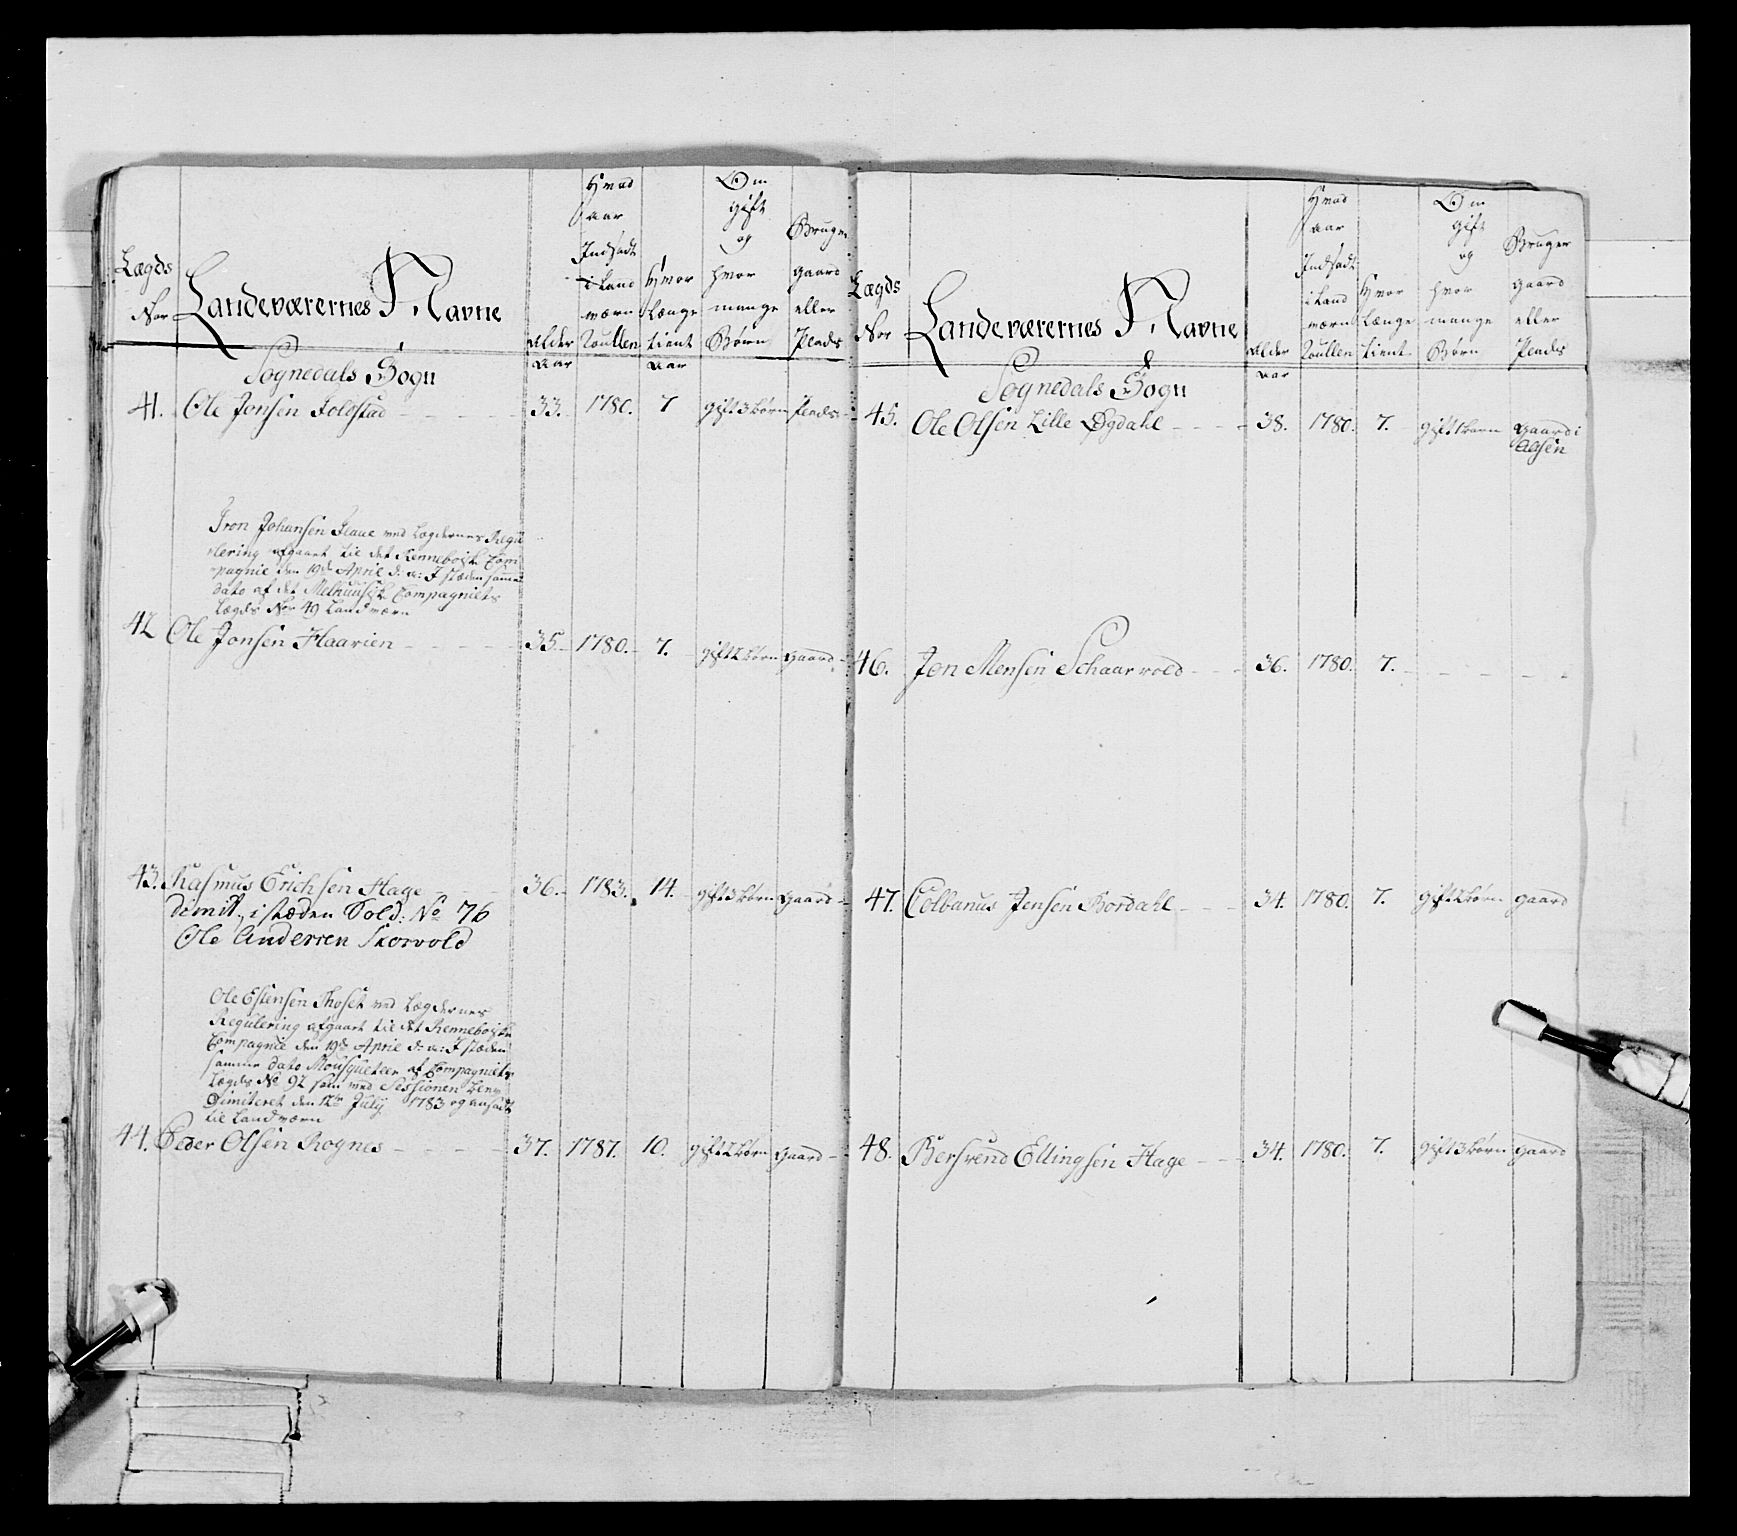 Lægds
Nor
Landeværernes Navne
Alder
Aar
Hvad
aar
Indsadt
i Land
værn
Roullen
Hvor
Længe
tient
Aar
Om
gift
og
hvor
mange
Børn
Bruger
gaard
eller
Plads
Sognedals Sogn
41. Ole Jonsen Foldstad - - - - 33. 1780. 7 gift 3 børn Plads -
Iron Johansen Flaae ved Lægdernes Regu
lering afgaaet til det Rennebojsk Com
pagnie den 19de April d: a: I stæden samme
dato af det Melhuusisk Compagniets
Lægds Nor 49 Landværn
42 Ole Jonsen Haavien - - - - - 35. - 1780. - 7. gift 2 børn gaard -
43. Rasmus Erichsen Hage - - - 36. - 1783. 14. gift 3 børn gaard -
dimit., i stæden Sold: No 76
Ole Anderssen Skorvold
Ole Estensen Thoset ved Lægdernes
Regulering afgaaet til det Rennebojsk
Compagnie den 19de April d: a: I stæden
samme dato Mousqueteer af Compagniets
Lægds No 92 som ved Sessionen blev
Dimiteret den 12te July 1783 og ansadt
til Landværn
44. Peder Olsen Rognes - - - - - 37. 1787. 10. gift 2 børn gaard -
Lægds
Nor
Landeværernes Navne
Alder
Aar
Hvad
aar
Indsadt
i Land
værn
Roullen
Hvor
Længe
tient
Om
gift
og
hvor
mange
Børn
Bruger
gaard
eller
Plads
Sognedals Sogn
45. Ole Olsen Lille Øgdahl - - - - 38. 1780. 7. gift 1 barn gaard i
Aalsen
46. Jon Mensen Schaarvold - - - 36. 1780. 7. - - - - -
47. Colbanus Jensen Bordahl - - - 34. 1780. 7. gift 2 børn gaard
48. Bersvend Ellingsen Hage - - 34. 1780. 7. gift 3 børn gaard